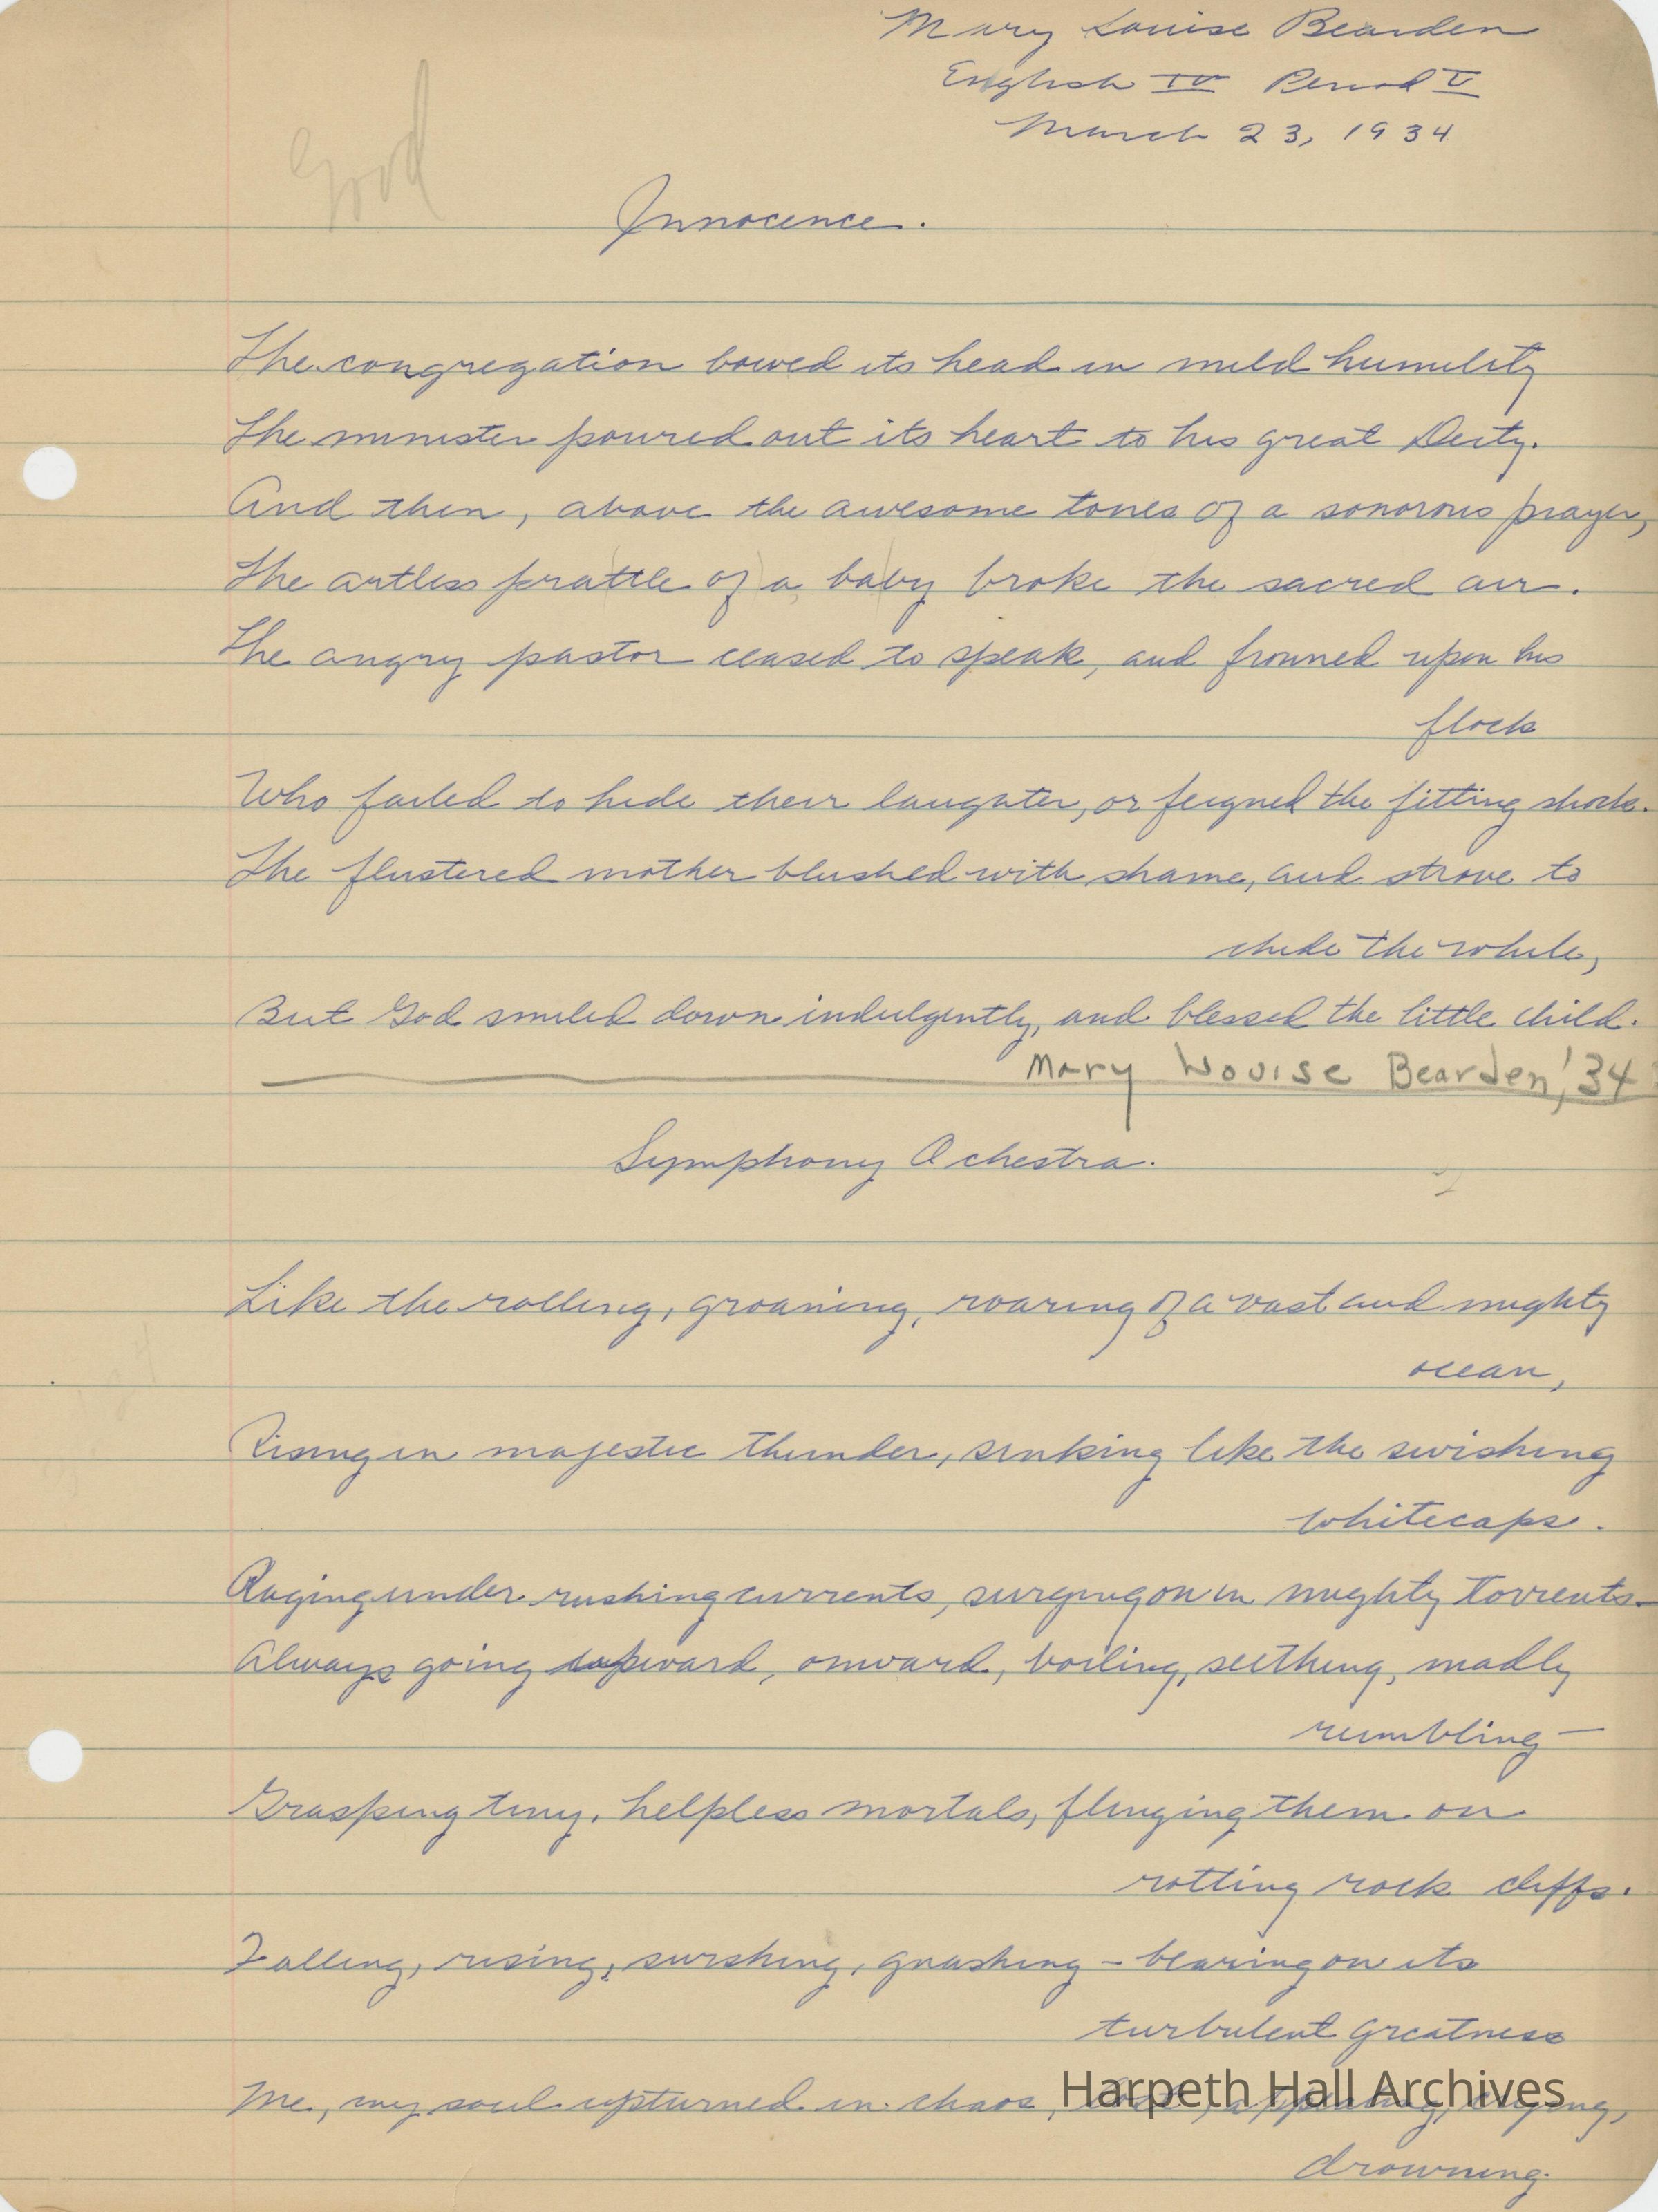 Mary Louise Bearden
English IV Period V
March 23, 1934
Good
Innocence.
The congregation bowed its head in mild humility
The minister poured out its heart to his great Deity.
And then, above the awesome tones of a sonorous prayer,
The artless prattle of a baby broke the sacred air.
The angry pastor ceased to speak, and frowned upon his
flock
Who failed to hide their laughter, or feigned the fitting shock.
The flustered mother blushed with shame, and strove to
chide the while,
But God smiled down indulgently, and blessed the little child.
Mary Louise Bearden, '34
Symphony Ochestra.
Like the rolling, groaning, roaring of a vast and mighty
ocean,
Rising in majestic thunder, sinking like the swishing
whitecaps.
Raging under rushing currents, surging on in mighty torrents—
Always going upward, onward, boiling, seething, madly
rumbling—
Grasping tiny, helpless mortals, flinging them on
rotting rock cliffs.
Falling, rising, swishing, gnashing — bearing on its
turbulent greatness
Me, my soul upturned in chaos,
drowning.
Harpeth Hall Archives